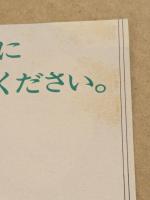 に
ください。